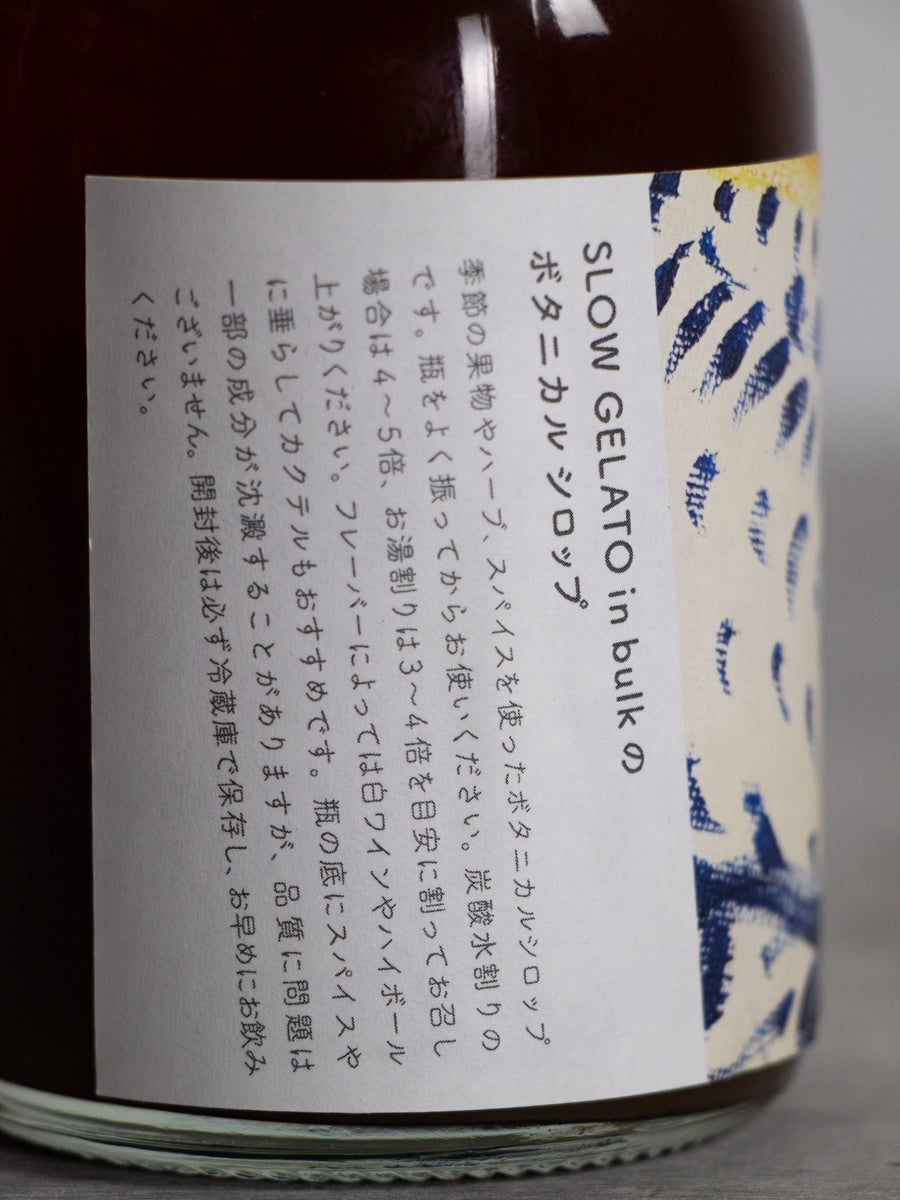 SLOW GELATO in bulk の
ボタニカルシロップ
季節の果物やハーブ、スパイスを使ったボタニカルシロップ
です。瓶をよく振ってからお使いください。炭酸水割りの
場合は4～5倍、お湯割りは3～4倍を目安に割ってお召し
上がりください。フレーバーによっては白ワインやハイボール
に垂らしてカクテルもおすすめです。瓶の底にスパイスや
一部の成分が沈澱することがありますが、品質に問題は
ございません。開封後は必ず冷蔵庫で保存し、お早めにお飲み
ください。